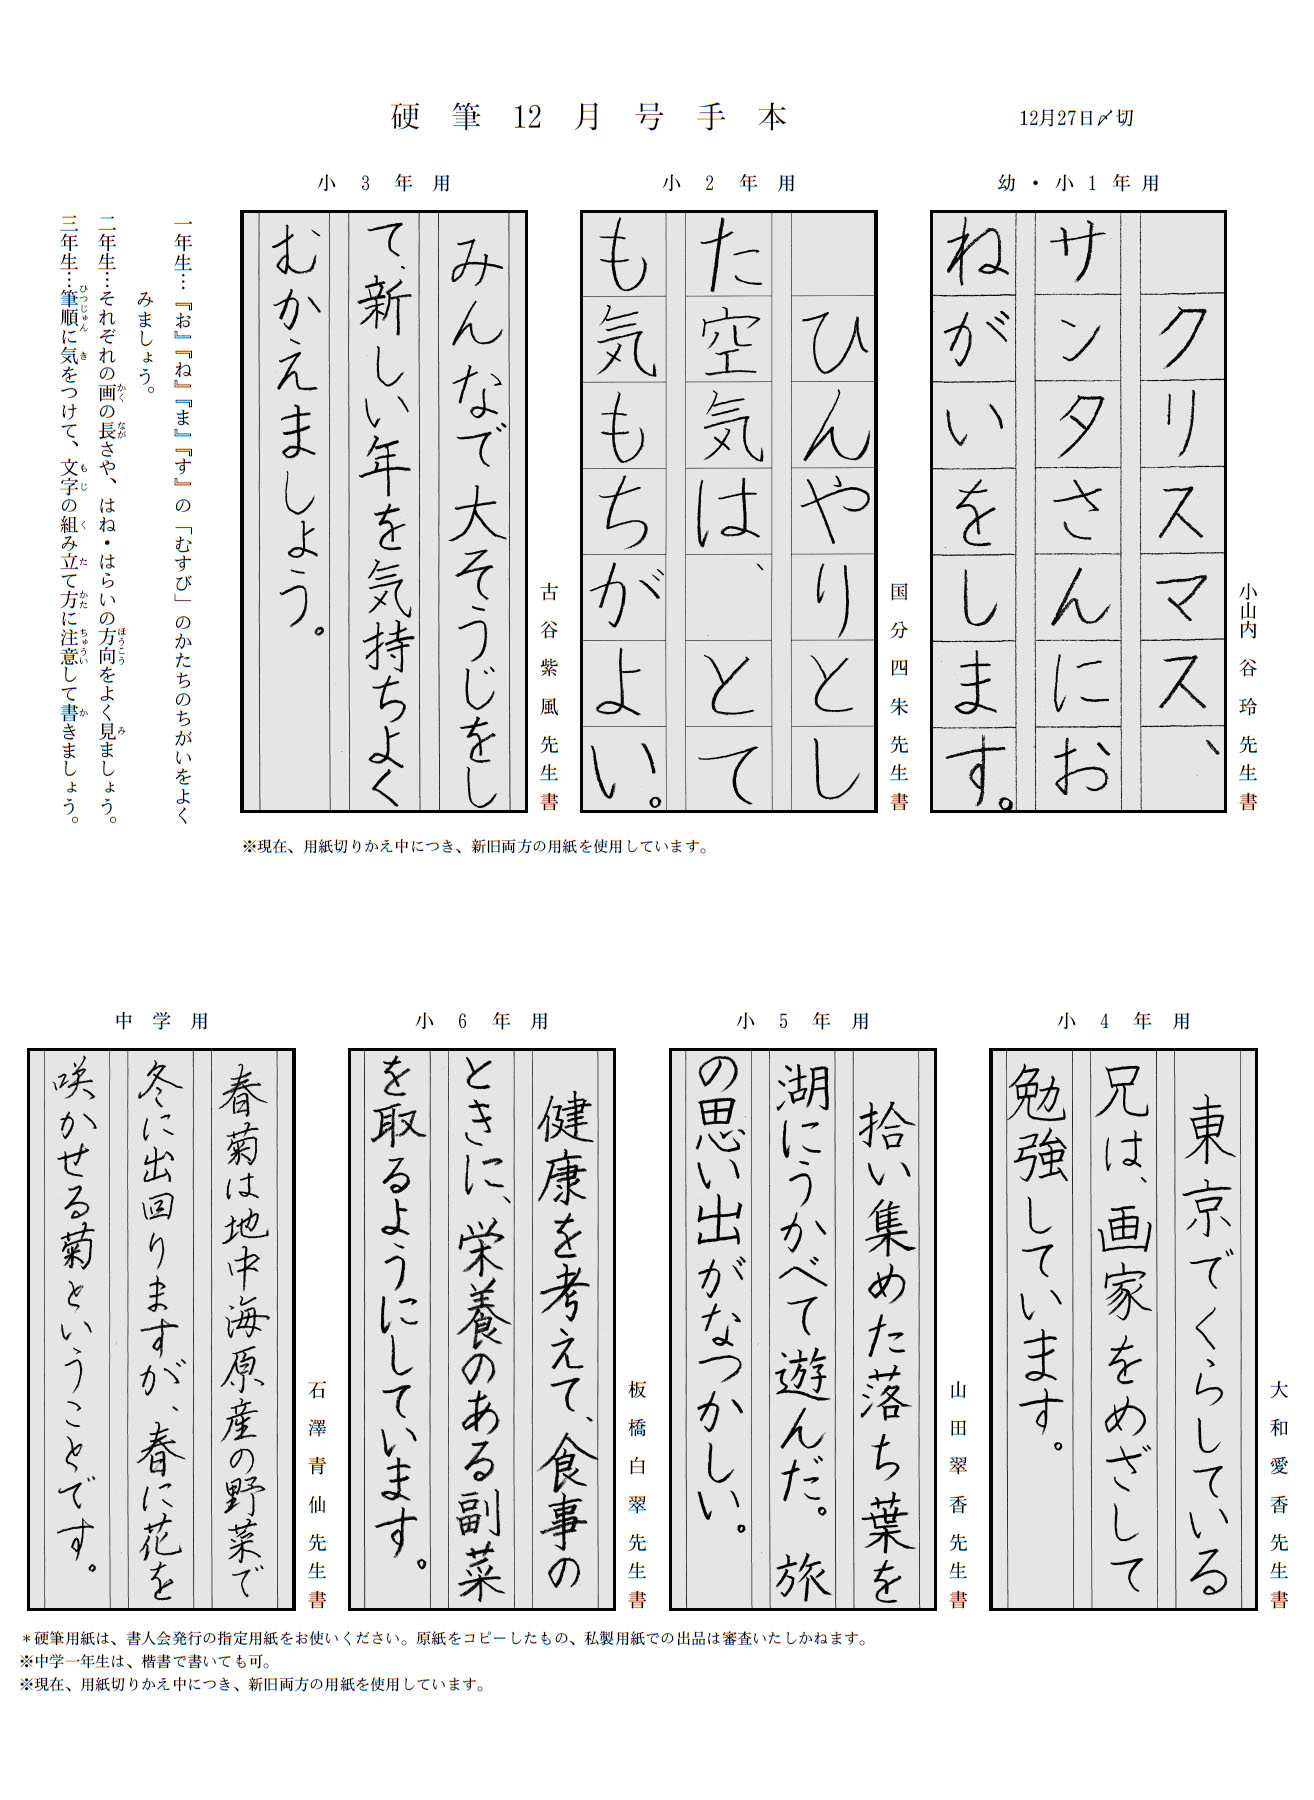 硬筆12月号手本
12月27日〆切
幼・小1年用
クリスマス、
サンタさんにお
ねがいをします。
小山内谷玲先生書
小2年用
ひんやりとし
た空気は、とて
も気もちがよい。
国分四朱先生書
小3年用
みんなで大そうじをし
て、新しい年を気持ちよく
むかえましょう。
古谷紫風先生書
一年生…『お』『ね』『ま』『す』の「むすび」のかたちのちがいをよく
みましょう。
二年生…それぞれの画の長さや、はね・はらいの方向をよく見ましょう。
かく なが ほうこう み
三年生…筆順に気をつけて、文字の組み立て方に注意して書きましょう。
ひつじゅん き もじ く た かた ちゅうい か
※現在、用紙切りかえ中につき、新旧両方の用紙を使用しています。
小4年用
東京でくらしている
兄は、画家をめざして
勉強しています。
大和愛香先生書
小5年用
拾い集めた落ち葉を
湖にうかべて遊んだ。旅
の思い出がなつかしい。
山田翠香先生書
小6年用
健康を考えて、食事の
ときに、栄養のある副菜
を取るようにしています。
板橋白翠先生書
中学用
春菊は地中海原産の野菜で
冬に出回りますが、春に花を
咲かせる菊ということです。
石澤青仙先生書
＊硬筆用紙は、書人会発行の指定用紙をお使いください。原紙をコピーしたもの、私製用紙での出品は審査いたしかねます。
※中学一年生は、楷書で書いても可。
※現在、用紙切りかえ中につき、新旧両方の用紙を使用しています。